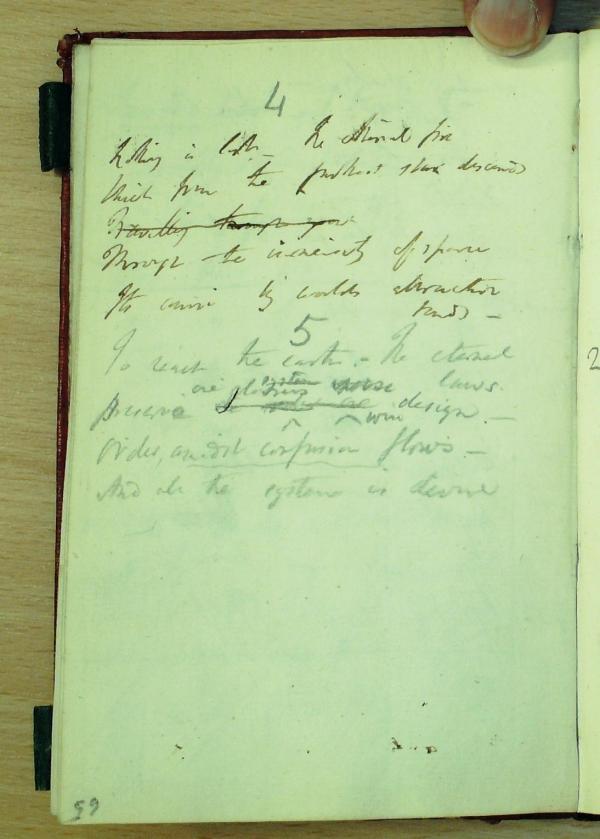 4
Nothing is lost. The etherial fire
Which from the farthest star descends
Travelling through space
Through the immensity of space
Its course by worlds attraction
tends –
5
To reach the earth. – The eternal
laws.
Preserve one glorious wise
design. –
Order amidst confusion flows –
And all the system is divine
59
2